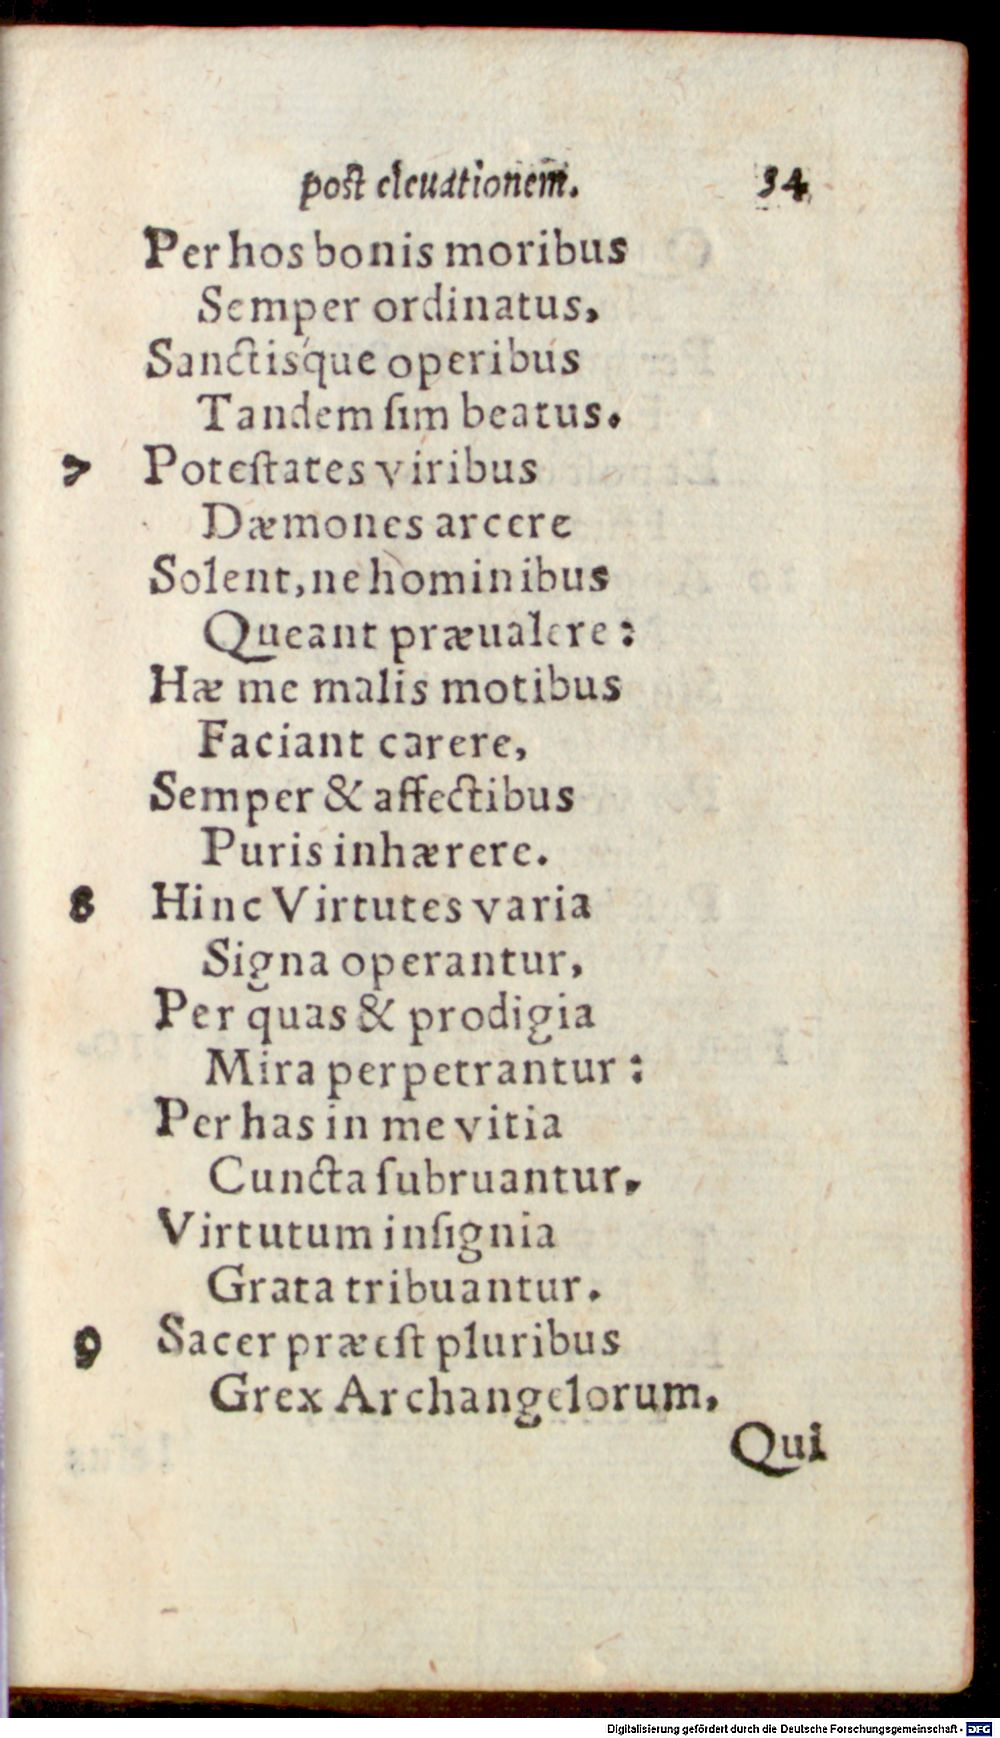 post eleuationem. 34
Per hos bonis moribus
Semper ordinatus,
Sanctísque operibus
Tandem ſim beatus.
7 Poteſtates viribus
Dæmones arcere
Solent, ne hominibus
Queant præualere:
Hæ me malis motibus
Faciant carere,
Semper & affectibus
Puris inhærere.
8 Hinc Virtutes varia
Signa operantur,
Per quas & prodigia
Mira perpetrantur:
Per has in me vitia
Cuncta ſubruantur,
Virtutum inſignia
Grata tribuantur.
9 Sacer præeſt pluribus
Grex Archangelorum,
Qui
Digitalisierung gefördert durch die Deutsche Forschungsgemeinschaft - DFG